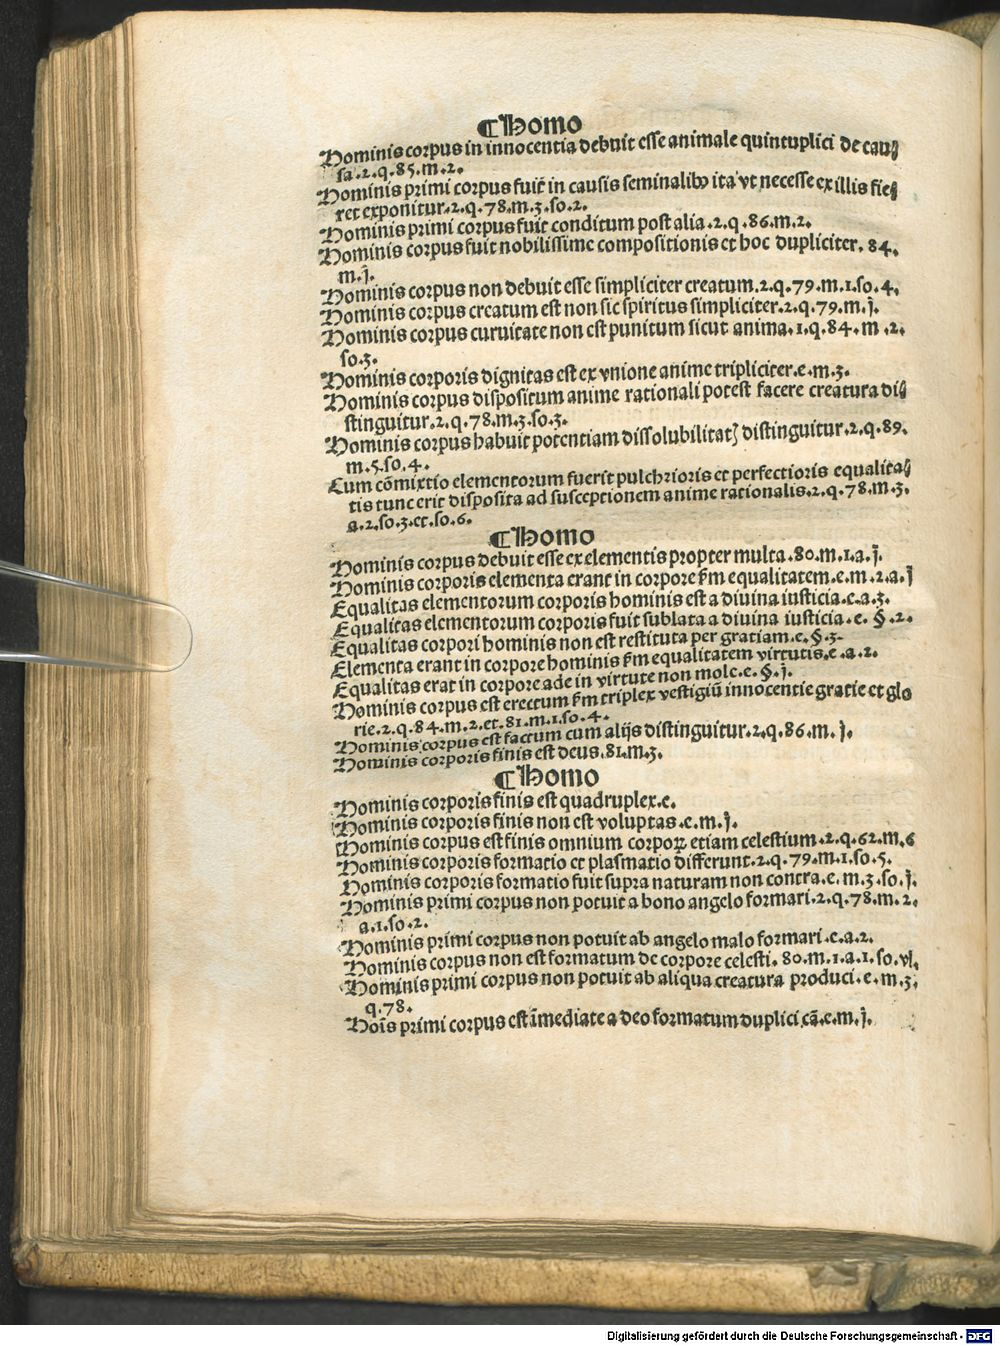 ¶Homo
Hominis corpus in innocentia debuit esse animale quintuplici de cau⸗
sa.2.q.85.m.2.
Hominis primi corpus fuit in causis seminalib9 ita vt necesse ex illis fie⸗
ret exponitur.2.q.78.m.3.so.2.
Hominis primi corpus fuit conditum post alia.2.q.86.m.2.
Hominis corpus fuit nobilissime compositionis et hoc dupliciter. 84.
m.j.
Hominis corpus non debuit esse simpliciter creatum.2.q.79.m.1.so.4.
Hominis corpus creatum est non sic spiritus simpliciter.2.q.79.m.j.
Hominis corpus curuitate non est punitum sicut anima.1.q.84.m.2.
so.3.
Hominis corporis dignitas est ex vnione anime tripliciter.e.m.3.
Hominis corpus dispositum anime rationali potest facere creatura di⸗
stinguitur.2.q.78.m.3.so.3.
Hominis corpus habuit potentiam dissolubilitatꝭ distinguitur.2.q.89.
m.5.so.4.
Cum cõmixtio elementorum fuerit pulchrioris et perfectioris equalita⸗
tis tunc erit disposita ad susceptionem anime rationalis.2.q.78.m.3.
a.2.so.3.et.so.6.
¶Homo
Hominis corpus debuit esse ex elementis propter multa.80.m.1.a.j.
Hominis corporis elementa erant in corpore fm equalitatem.e.m.2.a.j
Equalitas elementorum corporis hominis est a diuina iusticia.e.a.3.
Equalitas elementorum corporis fuit sublata a diuina iusticia.e. §.2.
Equalitas corpori hominis non est restituta per gratiam.e.§.3.
Elementa erant in corpore hominis fm equalitatem virtutis.e.a.2.
Equalitas erat in corpore ade in virtute non mole.e.§.j.
Hominis corpus est erectum fm triplex vestigiũ innocentie gratie et glo
rie.2.q.84.m.2.et.81.m.1.so.4.
Hominis corpus est factum cum alijs distinguitur.2.q.86.m.j.
Hominis corporis finis est deus.81.m.3.
¶Homo
Hominis corporis finis est quadruplex.e.
Hominis corporis finis non est voluptas.e.m.j.
Hominis corpus est finis omnium corpoꝝ etiam celestium.2.q.62.m.6
Hominis corporis formatio et plasmatio differunt.2.q.79.m.1.so.5.
Hominis corporis formatio fuit supra naturam non contra.e.m.3.so.j.
Hominis primi corpus non potuit a bono angelo formari.2.q.78.m.2.
a.1.so.2.
Hominis primi corpus non potuit ab angelo malo formari.e.a.2.
Hominis corpus non est formatum de corpore celesti.80.m.1.a.1.so.vl.
Hominis primi corpus non potuit ab aliqua creatura produci.e.m.3.
q.78.
Hoĩs primi corpus est ĩmediate a deo formatum duplici cã.e.m.j.
Digitalisierung gefördert durch die Deutsche Forschungsgemeinschaft - DFG